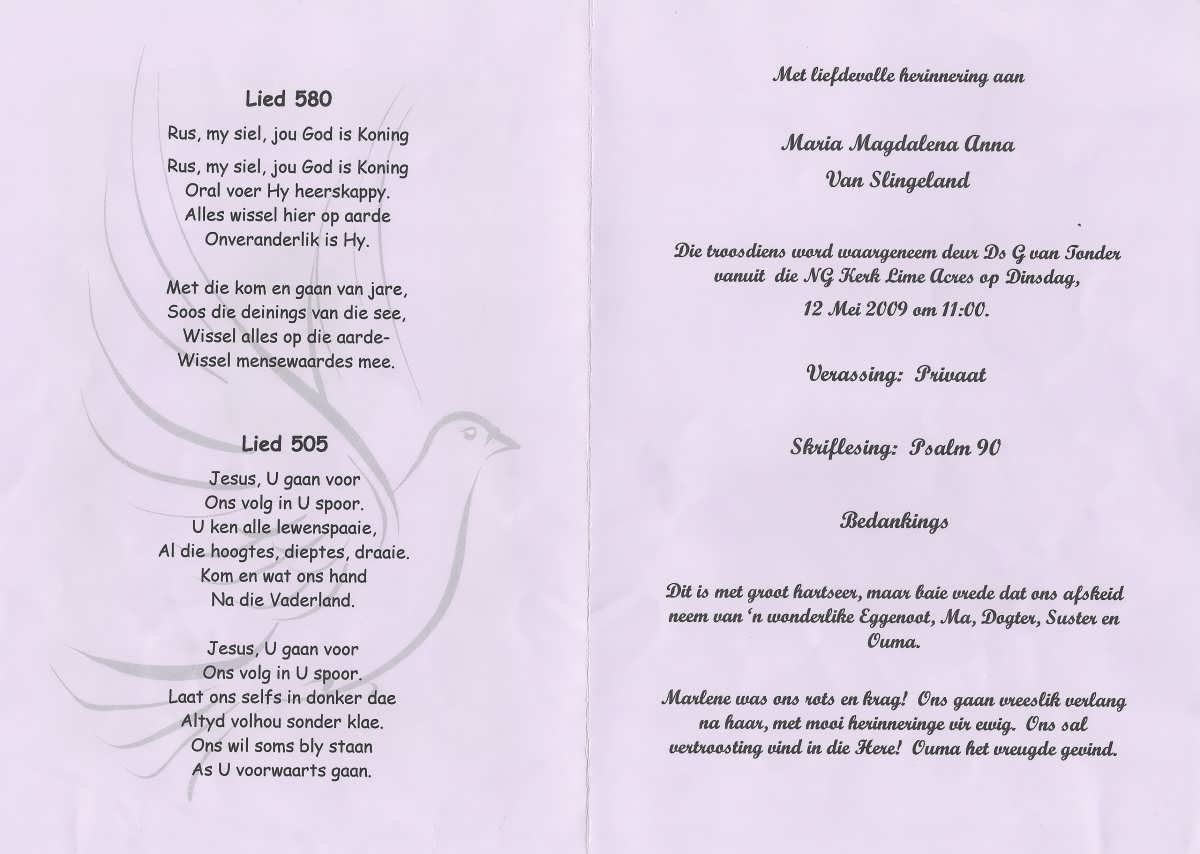 Lied 580
Rus, my siel, jou God is Koning
Rus, my siel, jou God is Koning
Oral voer Hy heerskappy.
Alles wissel hier op aarde
Onveranderlik is Hy.
Met die kom en gaan van jare,
Soos die deinings van die see,
Wissel alles op die aarde-
Wissel mensewaardes mee.
Lied 505
Jesus, U gaan voor
Ons volg in U spoor.
U ken alle lewenspaaie,
Al die hoogtes, dieptes, draaie.
Kom en wat ons hand
Na die Vaderland.
Jesus, U gaan voor
Ons volg in U spoor.
Laat ons selfs in donker dae
Altyd volhou sonder klae.
Ons wil soms bly staan
As U voorwaarts gaan.
Met liefdevolle herinnering aan
Maria Magdalena Anna
Van Slingeland
Die troosdiens word waargeneem deur Ds G van Tonder
vanuit die NG Kerk Lime Acres op Dinsdag,
12 Mei 2009 om 11:00.
Verassing: Privaat
Skriflesing: Psalm 90
Bedankings
Dit is met groot hartseer, maar baie vrede dat ons afskeid
neem van ‘n wonderlike Eggenoot, Ma, Dogter, Suster en
Ouma.
Marlene was ons rots en krag! Ons gaan vreeslik verlang
na haar, met mooi herinneringe vir ewig. Ons sal
vertroosting vind in die Here! Ouma het vreugde gevind.